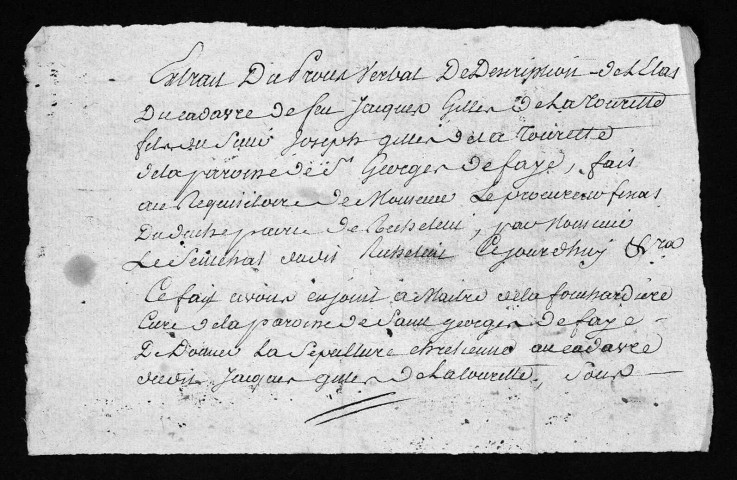 Extrait Du Proces Verbal De Description de L'Etat
Du cadavre de feu Jacques Gilles De La Tourette
fils du Sieur Joseph gilles de la Tourette
de la paroisse de St Georges De faye, fait
au Requisitoire de Monsieur Le procureur fiscal
Du duché pairie de Richelieu, par Monsieur
Le Senechal dudit Richelieu Cejourdhuy &ra
Ce fait avons enjoint a Maitre de la fouchardiere
Curé de la paroisse de Saint georges de faye
De Donner La Sepulture chretienne au cadavre
dudit Jacques gilles De La tourette, Sous